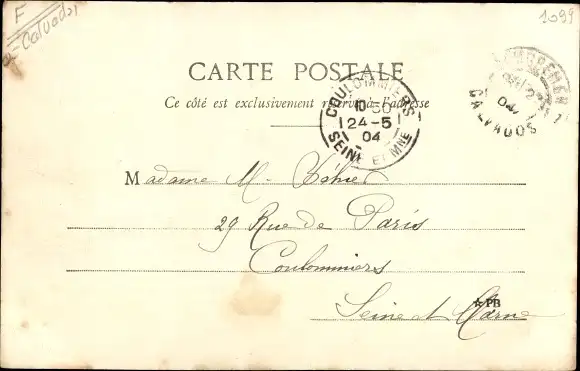 F
Calvados
1099
CARTE POSTALE
Ce côté est exclusivement réservé à l'adresse
COULOMMIERS
10 30
24-5
04
SEINE ET MNE
04
CALVADOS
Madame M.
29 Rue de Paris
Coulommiers
Seine et Marne
☆PB